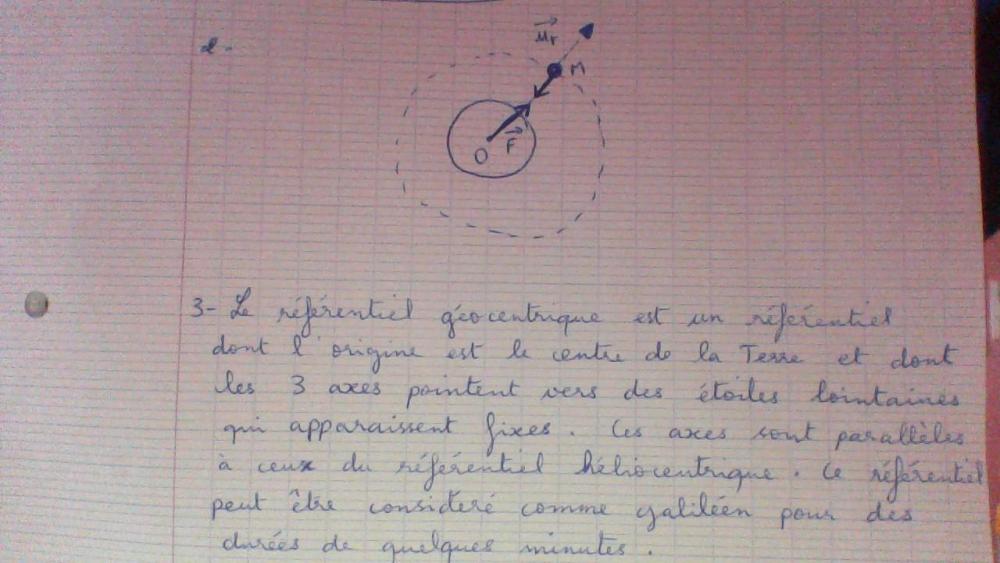 2-
u⃗r
M
F⃗
O
3- Le référentiel géocentrique est un référentiel
dont l'origine est le centre de la Terre et dont
les 3 axes pointent vers des étoiles lointaines
qui apparaissent fixes. Ces axes sont parallèles
à ceux du référentiel héliocentrique. Ce référentiel
peut être consideré comme galiléen pour des
durées de quelques minutes.